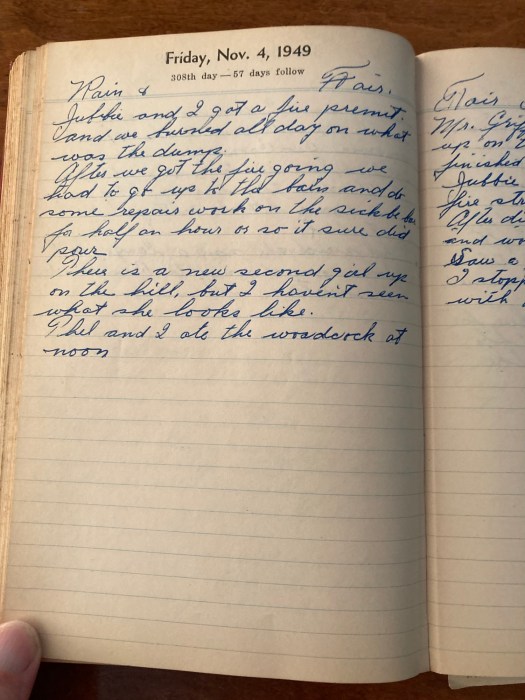 Friday, Nov. 4, 1949
308th day — 57 days follow
Rain & Fair.
Jubbie and I got a fire premit.
and we burned all day on what
was the dump.
After we got the fire going we
had to go up to the barn and do
some repairs work on the sick
for half an hour or so it sure did
pour
Ther is a new second girl up
on the hill, but I havent seen
what she looks like.
Phil and I ate the woodcock at
noon
Fair
Mr.
up on
finished
Jubbie
fire
Afte
and
Saw a
I stopp
with